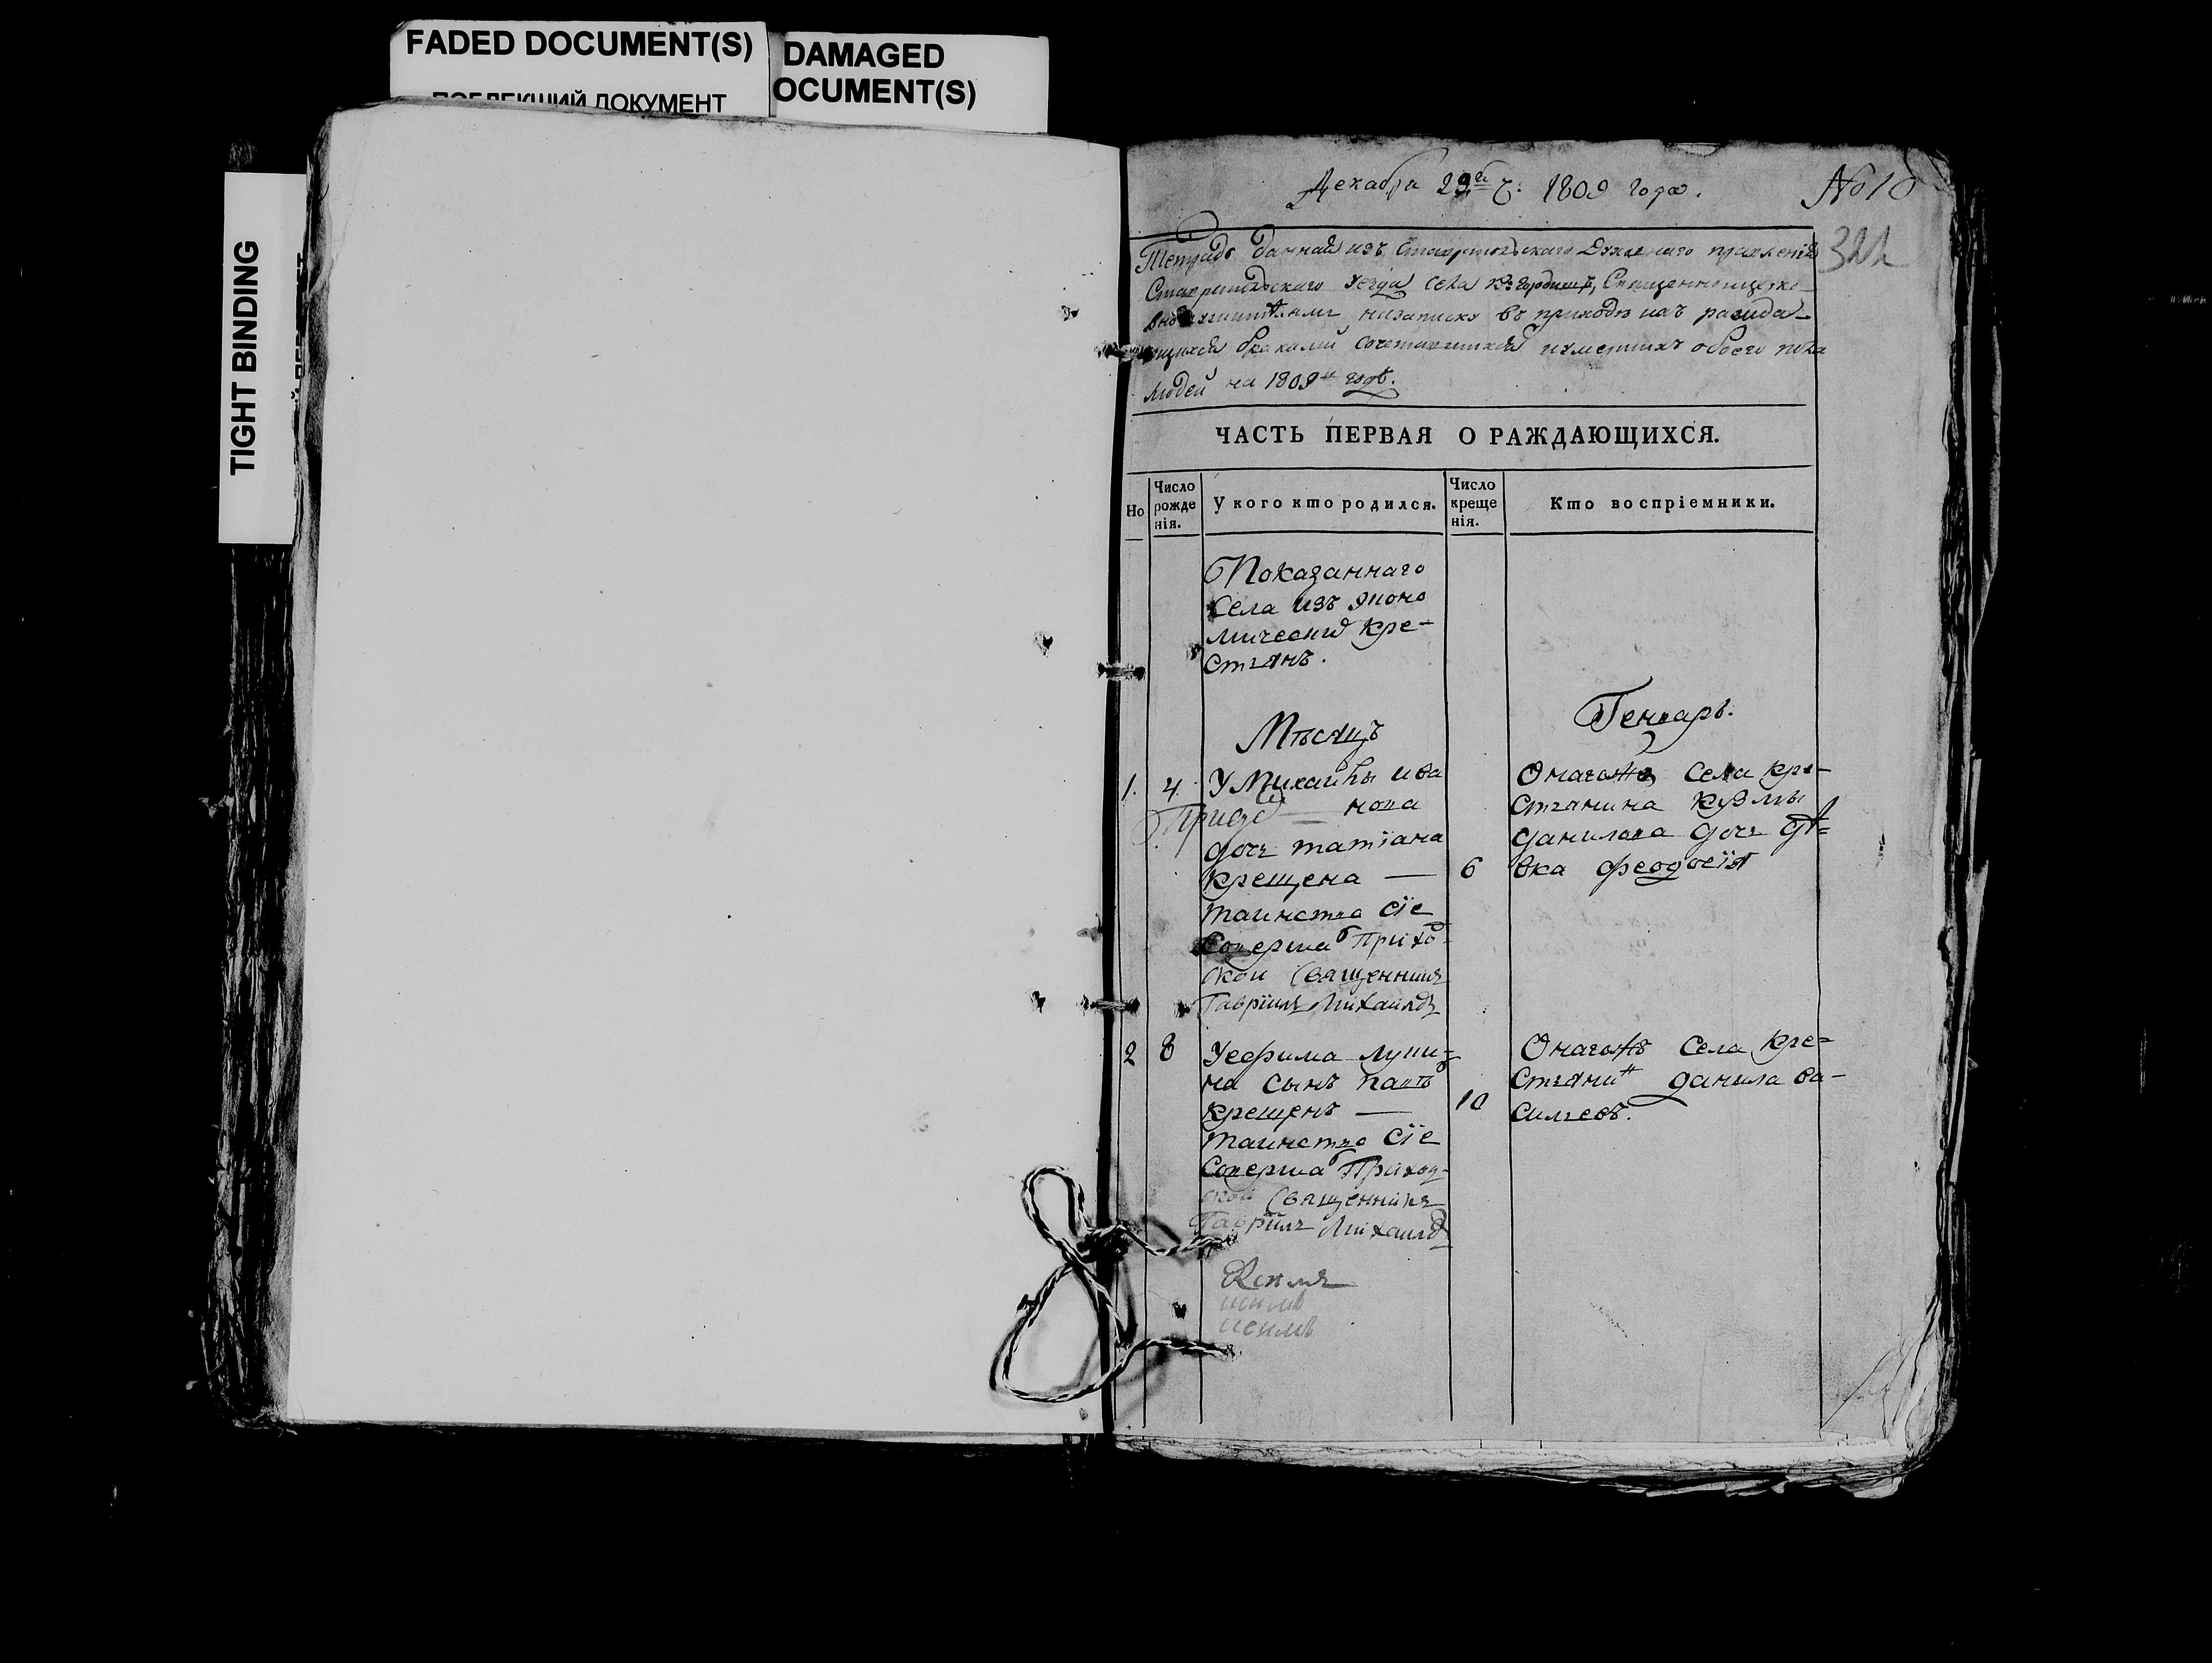 FADED DOCUMENT(S)
ПОБЛЕКШИЙ ДОКУМЕНТ
DAMAGED
OCUMENT(S)
TIGHT BINDING
Декабря 29го 1809 года.
№ 10
Тетрадь данная изъ Ставропольскаго Духовнаго правленія
Ставропольскаго уезда села
на записку въ приходѣ ихъ раждаю-
щихся бракомъ сочетавшихся и умершихъ обоего пола
людей на 1809й годъ.
ЧАСТЬ ПЕРВАЯ О РАЖДАЮЩИХСЯ.
Но
Число рожде нія.
У кого кто родился.
Число креще нія.
Кто воспріемники.
Показаннаго
села изъ эконо
мическихъ кре-
стьянъ.
Мѣсяцъ
Генварь.
1. 4. У Михайлы Ива
нова
дочь татіана
крещена — 6
таинство сіе
Совершалъ Приход
ской Священникъ
Гавріилъ Михайловъ
Оногожъ села кре-
стьянина кузмы
данилова дочь дѣ-
вка феодосія
2 8 У ефима лупи-
на сынъ павелъ
крещенъ — 10
таинство сіе
Совершалъ Приход-
ской Священникъ
Гавріилъ Михайловъ
Оногожъ села кре=
стьянинъ данила ва-
сильевъ.